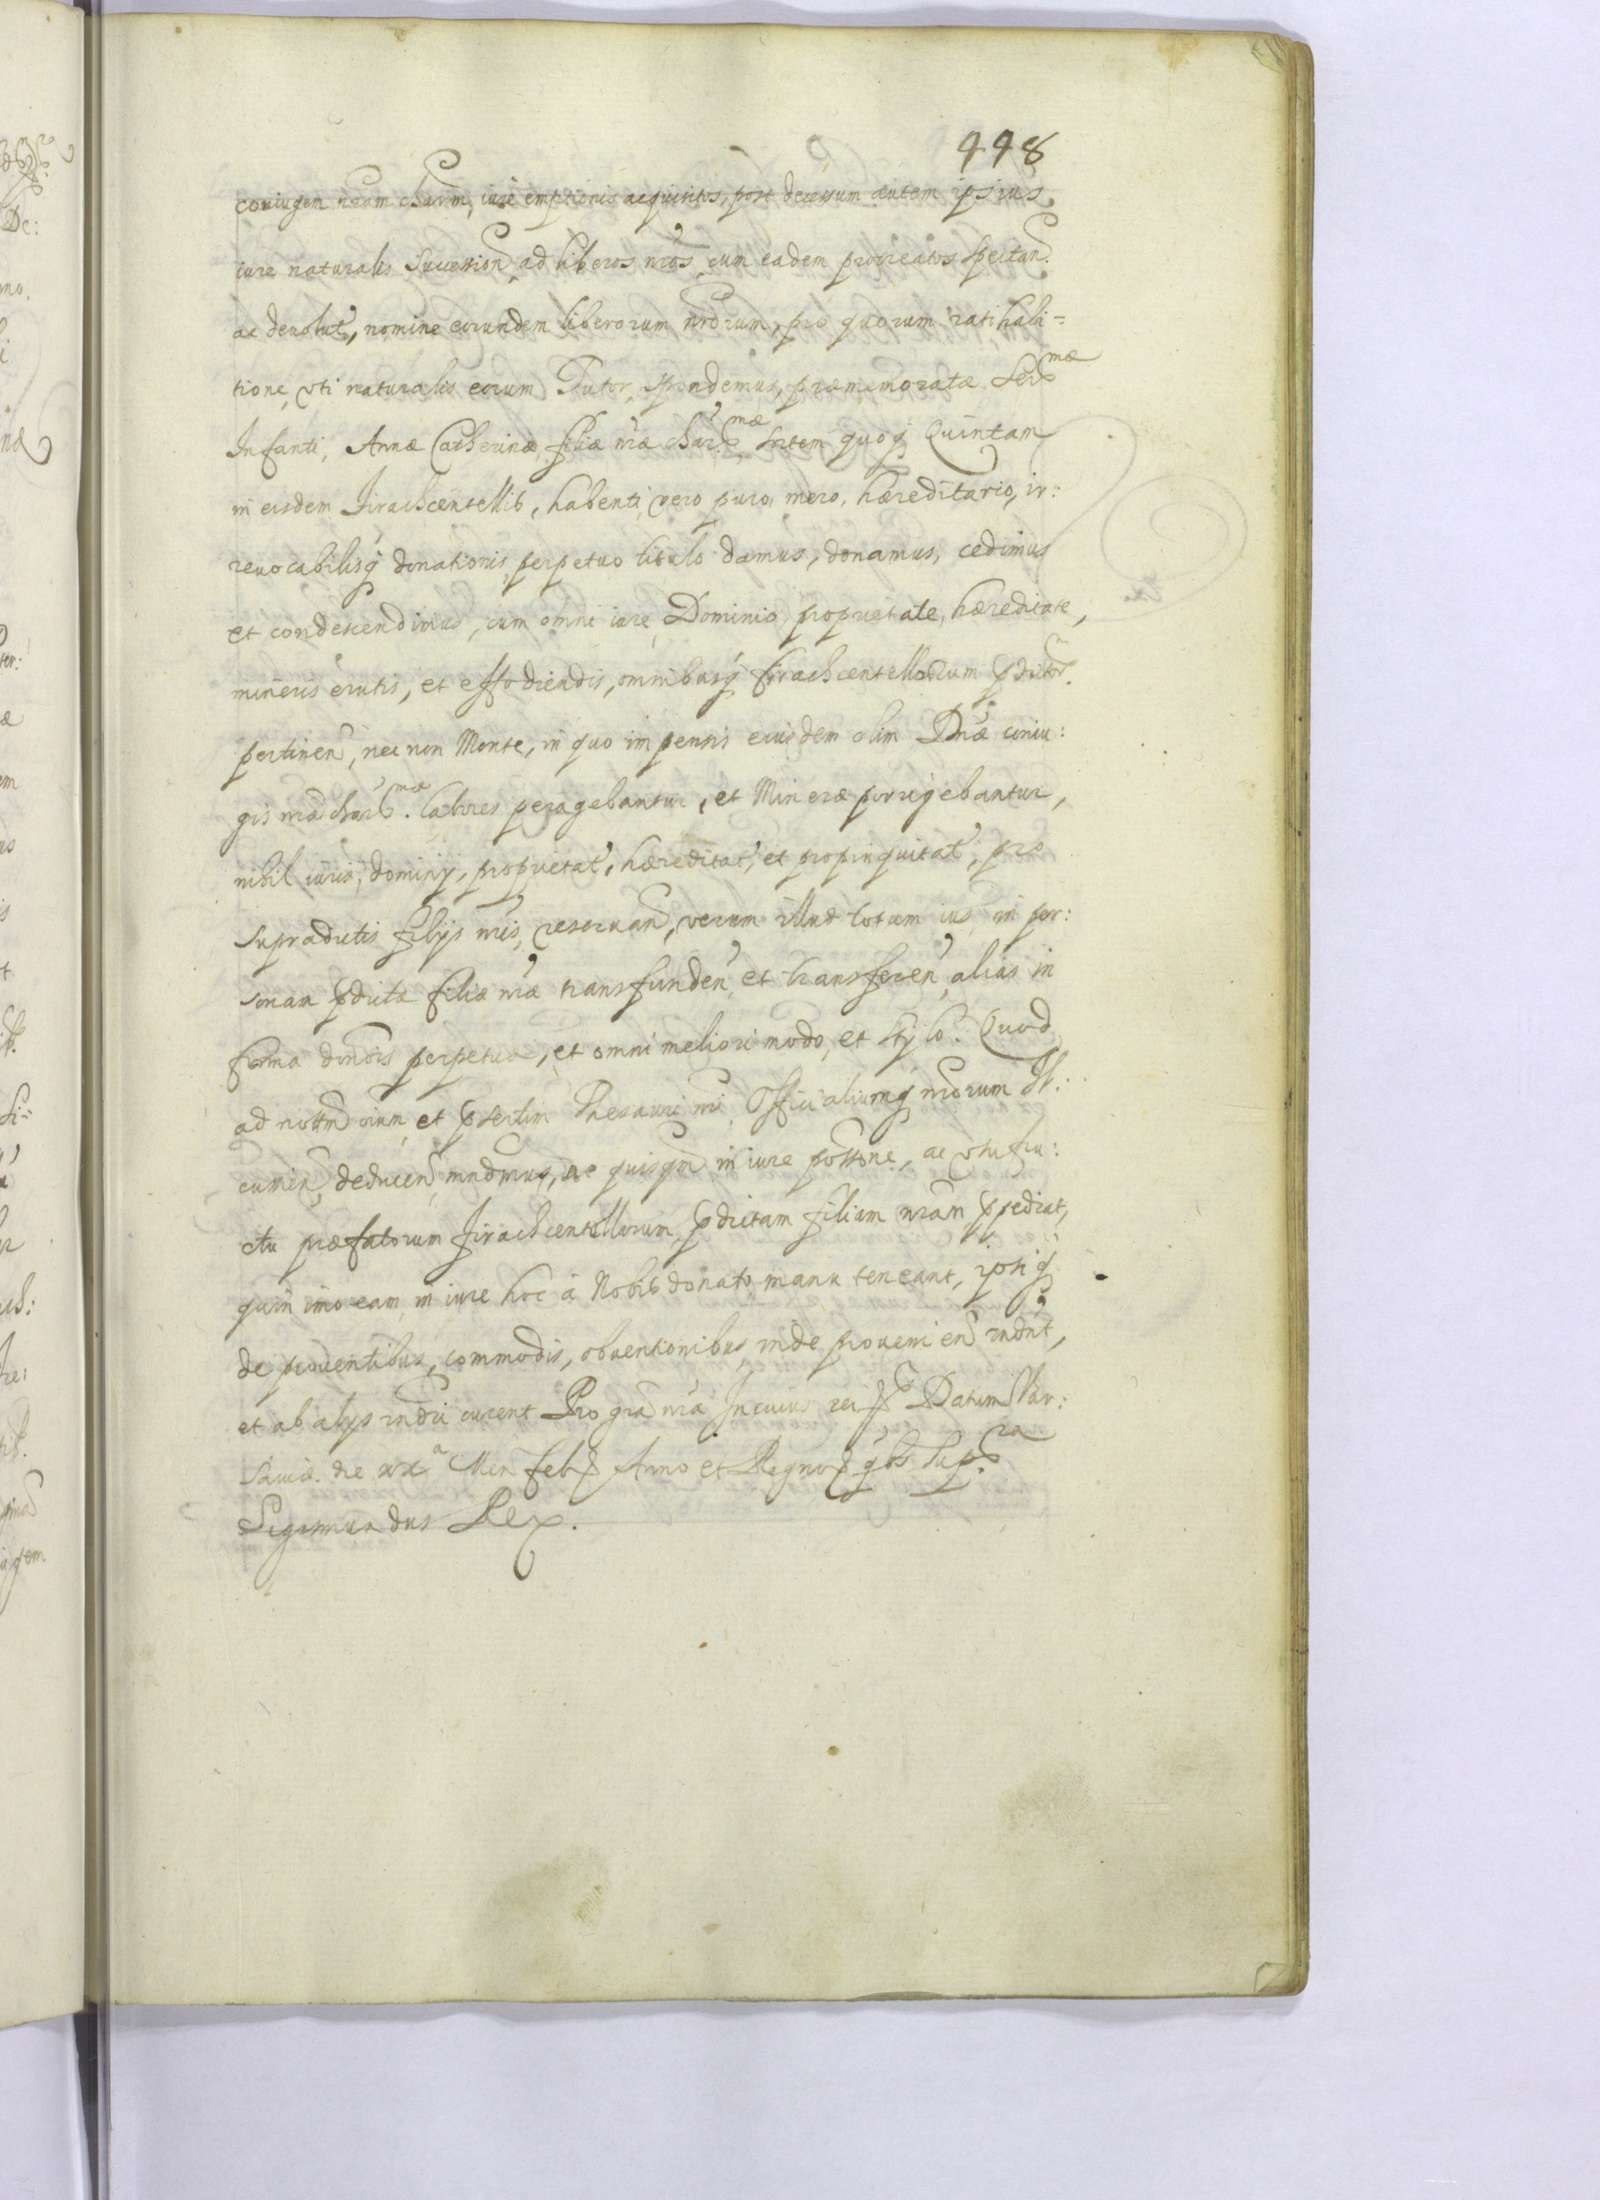 448
coniugem nram charm, iure emptionis acquisitos, post decessum autem ipsius
iure naturalis Succession ad liberos nros cum eadem procreatos spectan.
ac devolut, nomine eorundem liberorum nrorum, pro quorum ratihabi=
tione, vti naturalis eorum Tutor, spondemus, præmemoratæ Ser mæ
Infanti, Annæ Catherinæ, filiæ nræ char mæ, sortem quoq Quintam
in eisdem firachcentellis, habenti, vero, puro, mero, hæreditario, ir:
reuocabilisq donationis, perpetuo titulo damus, donamus, cedimus
et condescendimus, cum omni iure, Dominio, proprietate, hæreditate,
mineris erutis, et effodiendis, omnibusq firachcentellorum pdictor.
pertinen, nec non Monte, in quo impensis eiusdem olim Dnæ coniu:
gis nræ char mæ. labores peragebantur, et Mineræ porrigebantur,
nihil iuris, dominij, proprietat, hæreditat, et propinquitat, pro
supradictis filijs nris, reseruan, verum illud totum ius in per:
sonam pdictæ filiæ nræ transfunden, et transferen, alias in
forma donois perpetuæ, et omni meliori modo, et stylo. Quod
ad notm oium, et psertim Thesauri nri Officialiumq nrorum Il:
cumien, deducen, mndmus, ne quisqm in iure possone, ac vsufru:
ctu præfatorum firachcentellorum, pdictam filiam nram ppediat,
quin imo eam, in iure hoc à Nobis donato manu teneant, ipsiq
de prouentibus, commodis, obuentionibus, inde prouenien rndnt,
et ab alijs rndri curent Pro gra nra In cuius rei Datum Var:
sauiæ die xx a Men feb Anno et Regnor qbs sup ra
Sigismundus Rex.